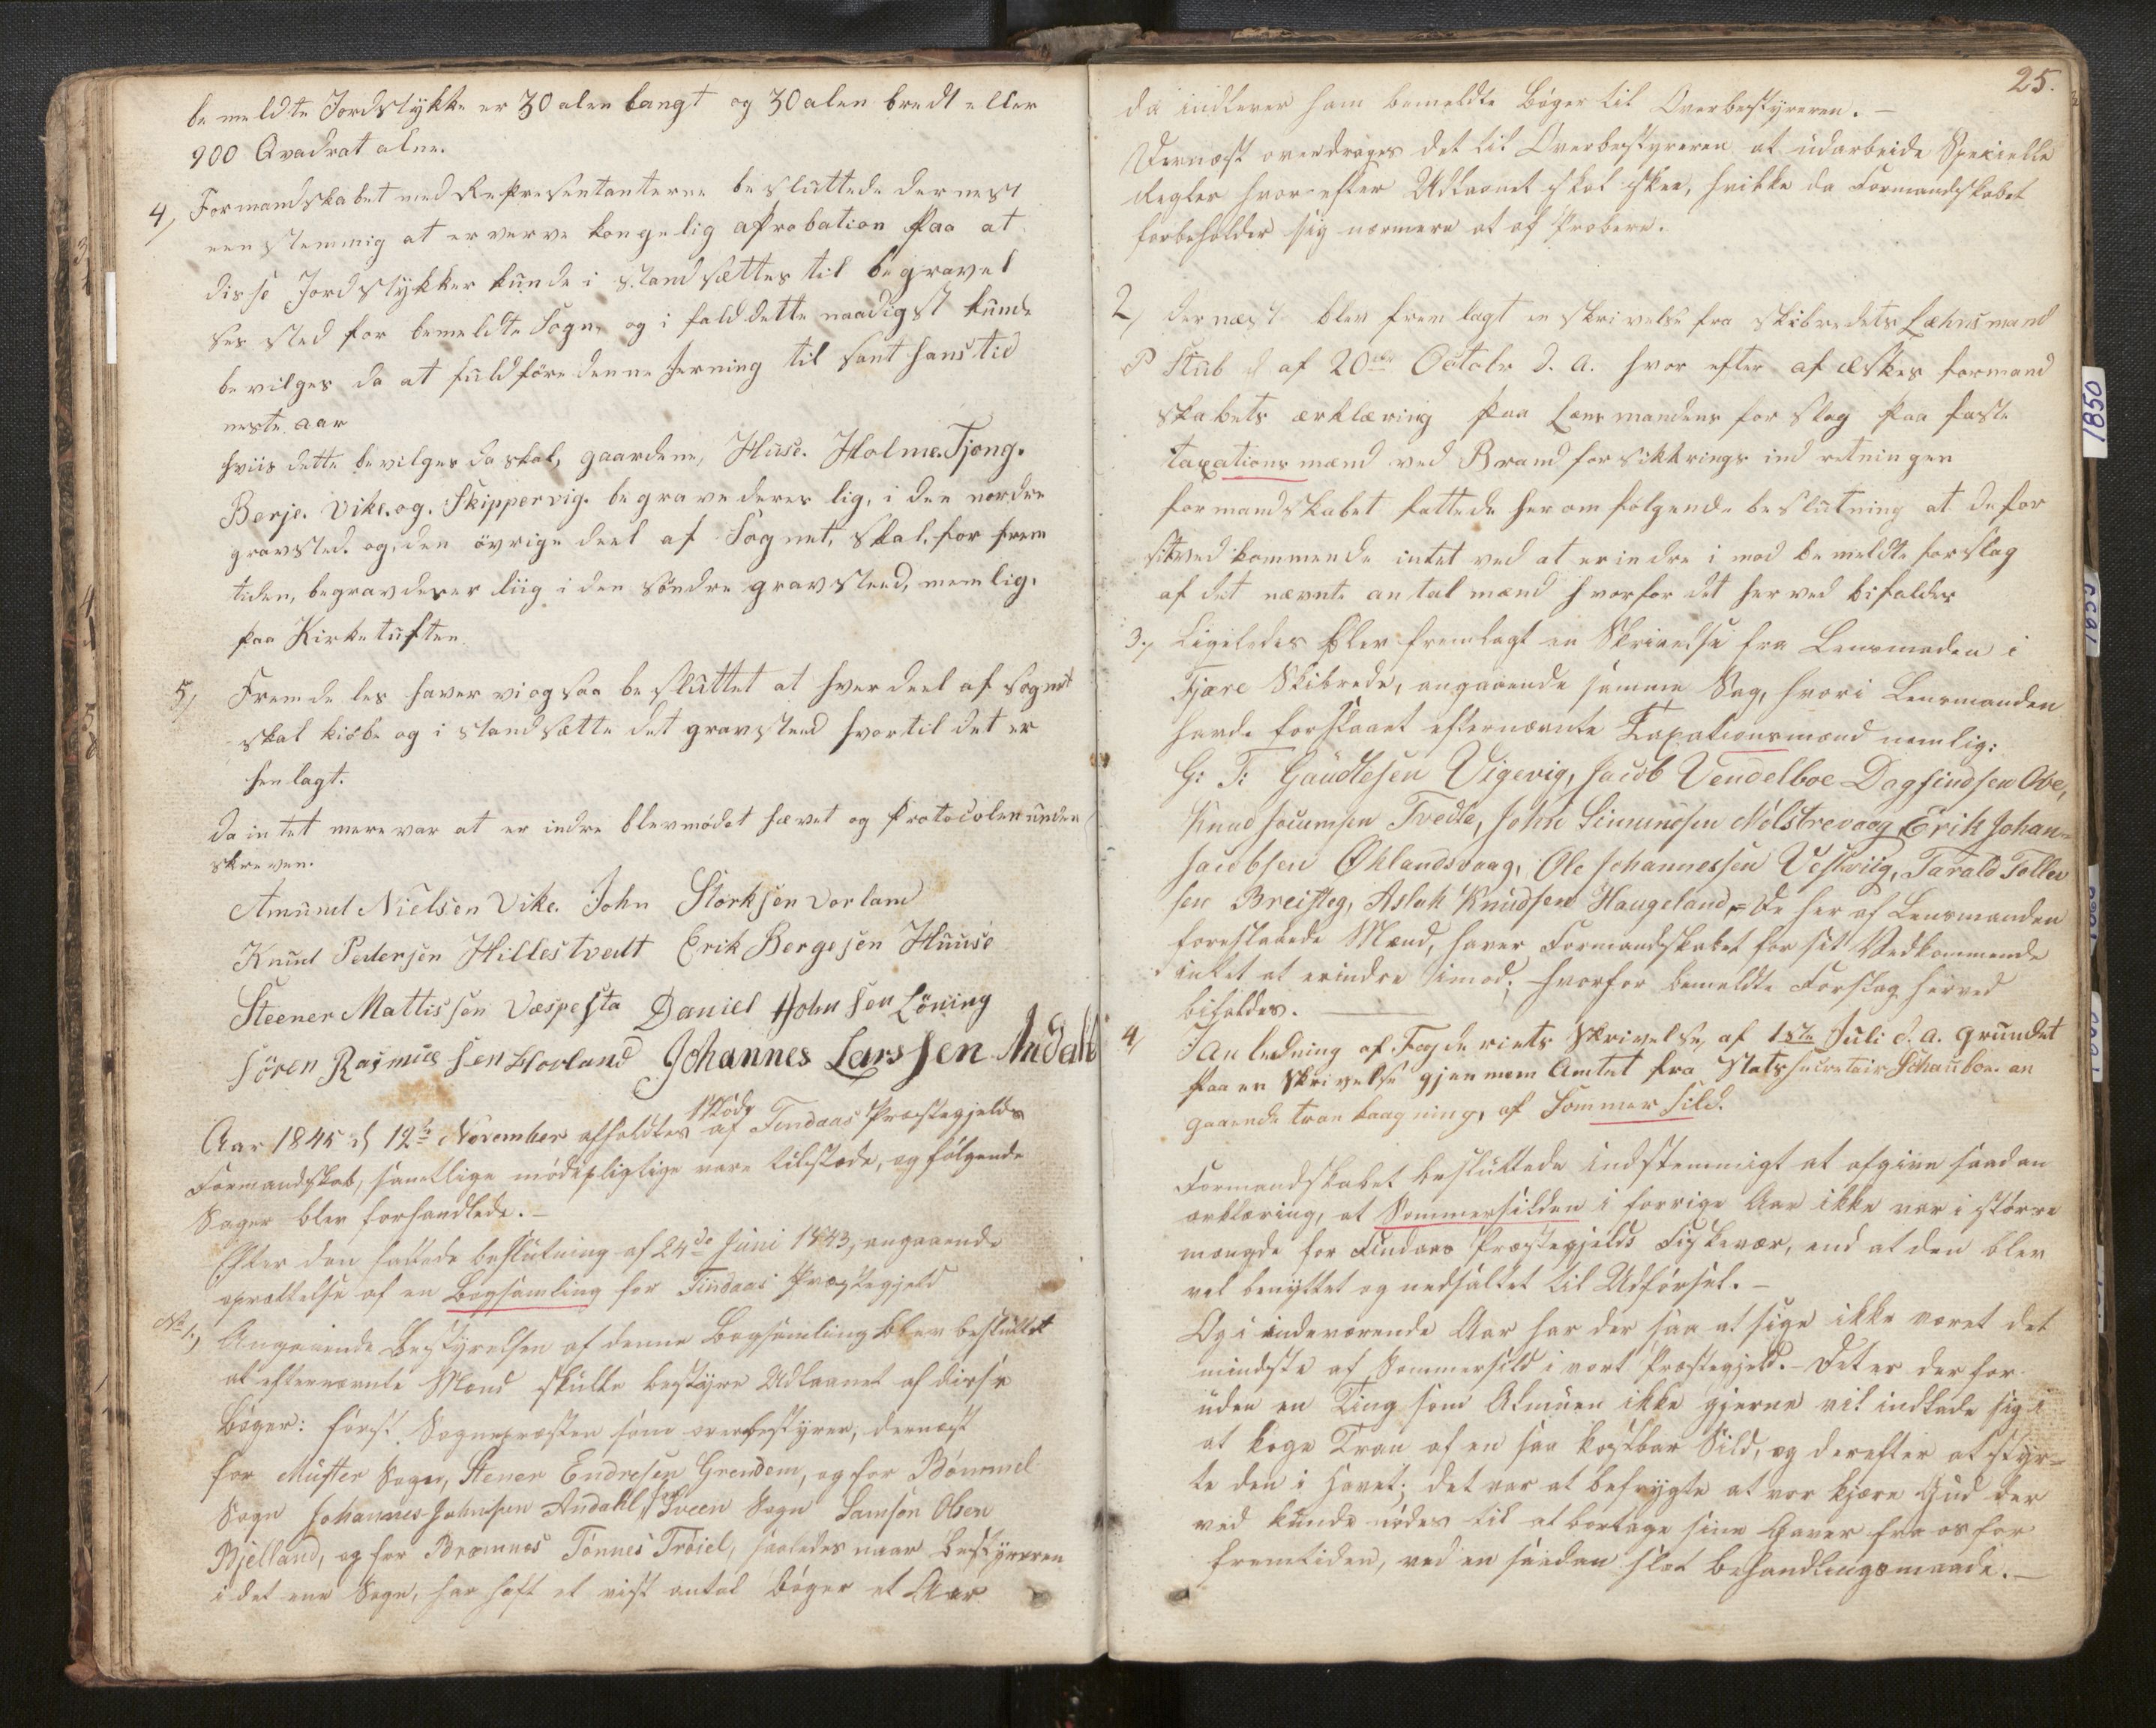 bemeldte Jordstykke er 30 alen langt og 30 alen bredt eller
900 Qvadrat alne.
4, Formandskabet med Repræsentanterne besluttede dernest
eenstemmig at erverve kongelig aprobation paa at
disse Jordstykker kunde i standsættes til begravel
ses sted for bemeldte Sogn, og i fald dette naadigst kunde
bevilges da at fuldføre denne Jerning til sant hans tid
neste aar
hviis dette bevilges da skal, gaardene, Huse. Holme. Tjong.
Berje. Vike. og. Skippervig. begrave deres lig, i den nordre
gravsted. og, den övrige deel af Sognet, skal, for frem
tiden, begrav deres liig i den söndre gravsteed, nemlig,
paa Kirketuften
5, Fremdeles haver vi ogsaa besluttet at hver deel af Sognet
skal kiöbe og i standsætte det gravsteed hvortil det er
henlagt.
da intet mere var at erindre blev mödet hævet og Protocolen under
skreven.
Amund Nielsen Vike. John Storksen Vorland
Knud Pedersen Hillestvedt Erik Bergesen Huuse
Steener Mattissen Væspesta Daniel Johnsen Löning
Sören Rasmussen Hovland Johannes Larssen Andahl
Aar 1845 d 12te November afholdtes Möde af Findaas Præstegjelds
Formandskab, samtlige mödepligtige vare tilstæde, og fölgende
Sager blev forhandlede. –
Efter den fattede beslutning af 24de Juni 1843, angaaende
oprættelse af en Bogsamling for Findaas Præstegjeld
No 1., Angaaende Bestyrelsen af denne Bogsamling blev besluttet
at efternævnte Mænd skulle bestyre Udlaanet af disse
Böger: først Sognepræsten som overbestyrer, dernæst
for Muster Sogn, Stener Endresen Grendem, og for Bömmel
Sogn Johannes Johnsen Andahl, for Sveen Sogn Samson Olsen
Bjelland, og for Bremnes Tönnes Tröiel, saaledes naar Bestyreren
i det ene Sogn, har haft et vist antal böger et Aar
25.
da indlever ham bemeldte Böger til Overbestyreren. –
Dernæst overdrages det til Overbestyreren at udarbeide Specielle
Regler hvorefter Udlaanet skal skee, hvilke da Formandskabet
forbeholder sig nærmere at af Probere.
2, dernæst blev frem lagt en skrivelse fra skibredets Læhnsmand
P Stub d af 20de Octobr d. A. hvor efter af æskes formand
skabets ærklæring paa Lensmandens forslag paa faste
taxations mænd ved Brandforsikkrings ind retningen
formandskabet fattede herom følgende beslutning at de for
sit ved kommende intet ved at erindre i mod bemeldte forslag
af det nævnte antal mænd hvorfor det herved bifaldes
3., Ligeledes blev fremlagt en Skrivelse fra Lensmaden i
Fjære Skibrede, angaaende samme Sag, hvori Lensmanden
havde forslaaet efternævnte Taxationsmænd nemlig:
G: T: Gaudtesen Vigevig, Jacob Vendelboe Dagfindsen Ove,
Knud Jocumsen Tvedte, John Simmensen Mölstrevaag, Erik Johan=
Jacobsen Öhlandsvaag, Ole Johannessen Vestviig, Tarald Tolle
sen Breisteg, Aslak Knudsen Haugeland, = De her af Lensmanden
foreslaaede Mænd, haver Formandskabet for sit Vedkommende
intet at erindre imod; hvorfor bemeldte Forslag herved
bifaldes.
4, I Anledning af Fogderiets Skrivelse, af 1ste Juli d. a. grundet
paa en skrivelse gjennem Amtet fra Statssecretair Schauboe. an
gaaende tran kaagning, af Sommer sild.
Formandskabet besluttede indstemmigt at afgive saadan
ærklæring, at Sommersilden i forrige Aar ikke var i større
mængde for Findaas Præstegjelds Fiskevær, end at den blev
vel benyttet og nedsaltet til Udförsel. –
Og i indeværende Aar har der saa at sige ikke været det
mindste af Sommersild i vort Præstegjeld. – Det er der for
uden en Ting som Almuen ikke gjerne vil indlade sig i
at koge Tran af en saa kostbar Sild, og derefter at styr=
te den i Havet; det var at befrygte at vor kjære Gud der
ved kunde nödes til at bortage sine Gaver fra os for
fremtiden, ved en saadan slet behandlingsmaade. –
1850